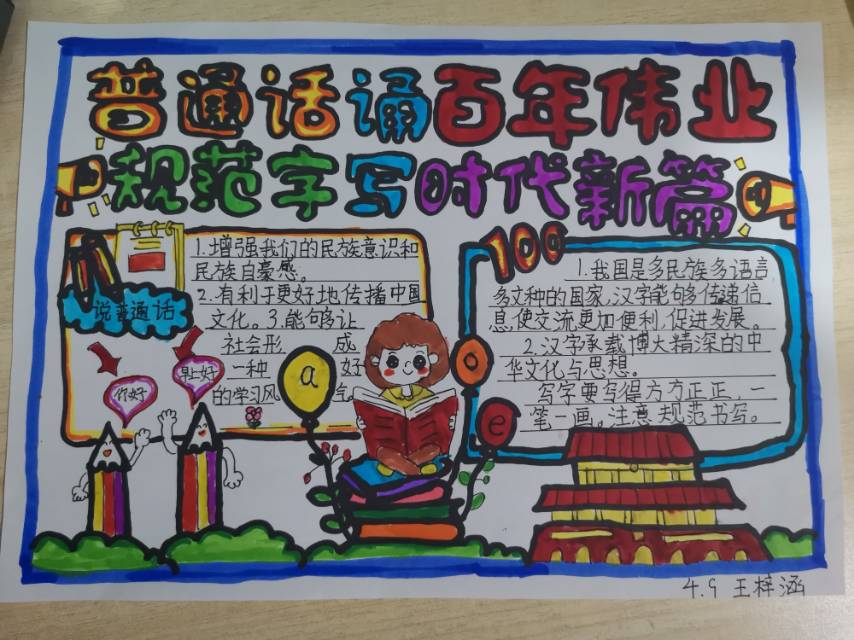 普通话诵百年伟业
规范字写时代新篇
说普通话
1.增强我们的民族意识和
民族自豪感。
2.有利于更好地传播中国
文化。3.能够让
社会形 成
一种 好
的学习风 气
你好
早上好
a
o
e
100
1.我国是多民族多语言
多文种的国家,汉字能够传递信
息,使交流更加便利,促进发展。
2.汉字承载博大精深的中
华文化与思想。
写字要写得方方正正,一
笔一画。注意规范书写。
4.9 王梓涵